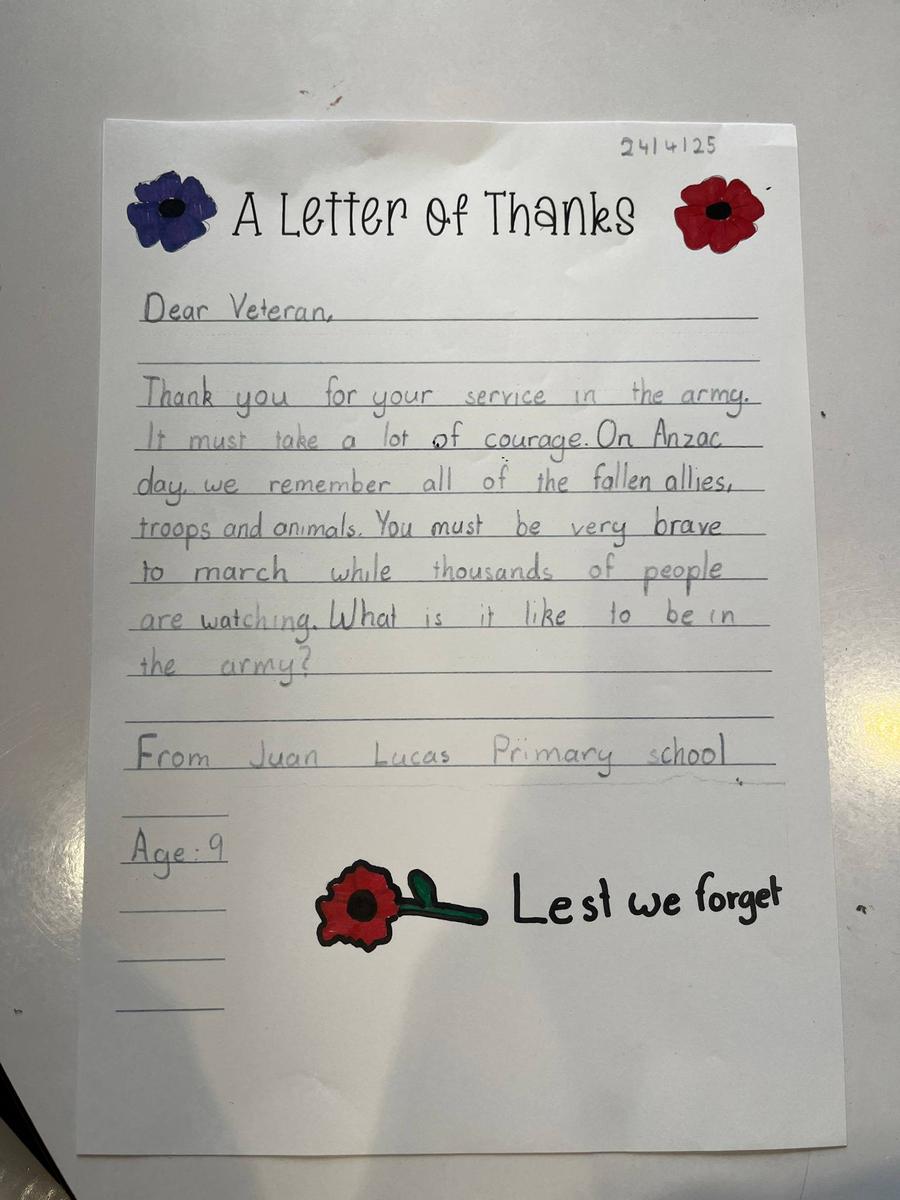 24/4/25
A Letter of Thanks
Dear Veteran,
Thank you for your service in the army.
It must take a lot of courage. On Anzac
day, we remember all of the fallen allies,
troops and animals. You must be very brave
to march while thousands of people
are watching. What is it like to be in
the army?
From Juan Lucas Primary school
Age: 9
Lest we forget